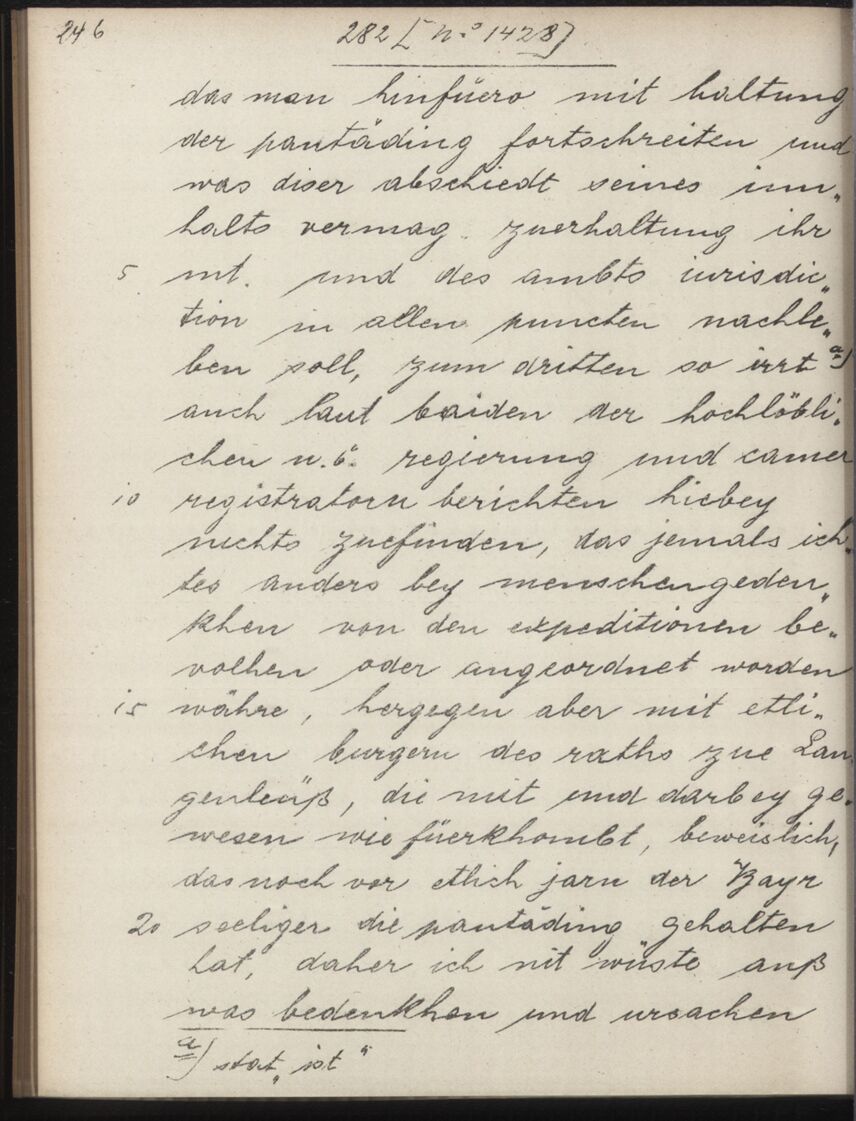 246
282 [n.o 1428]
das man hinfüero mit haltung
der pantäding fortschreiten und
was diser abschiedt seines inn„
halts vermag zuerhaltung ihr
5 mt. und des ambts iurisdic„
tion in allen puncten nachle„
ben soll, zum dritten so irrt a)
auch laut baiden der hochlöbli„
chen n.ö. regierung und camer
10 registratorn berichten hiebey
nichts zuefinden, das jemals ich„
tes anders bey menschengeden„
khen von den expeditionen be„
volhen oder angeordnet worden
15 währe, hergegen aber mit etli„
chen burgern des raths zue Lan„
genleüß, die mit und darbey ge„
wesen wie füerkhombt, beweislich,
das noch vor etlich jarn der Bayr
20 seeliger die pantäding gehalten
hat, daher ich nit wüste auß
was bedenkhen und ursachen
a) stat „ist“